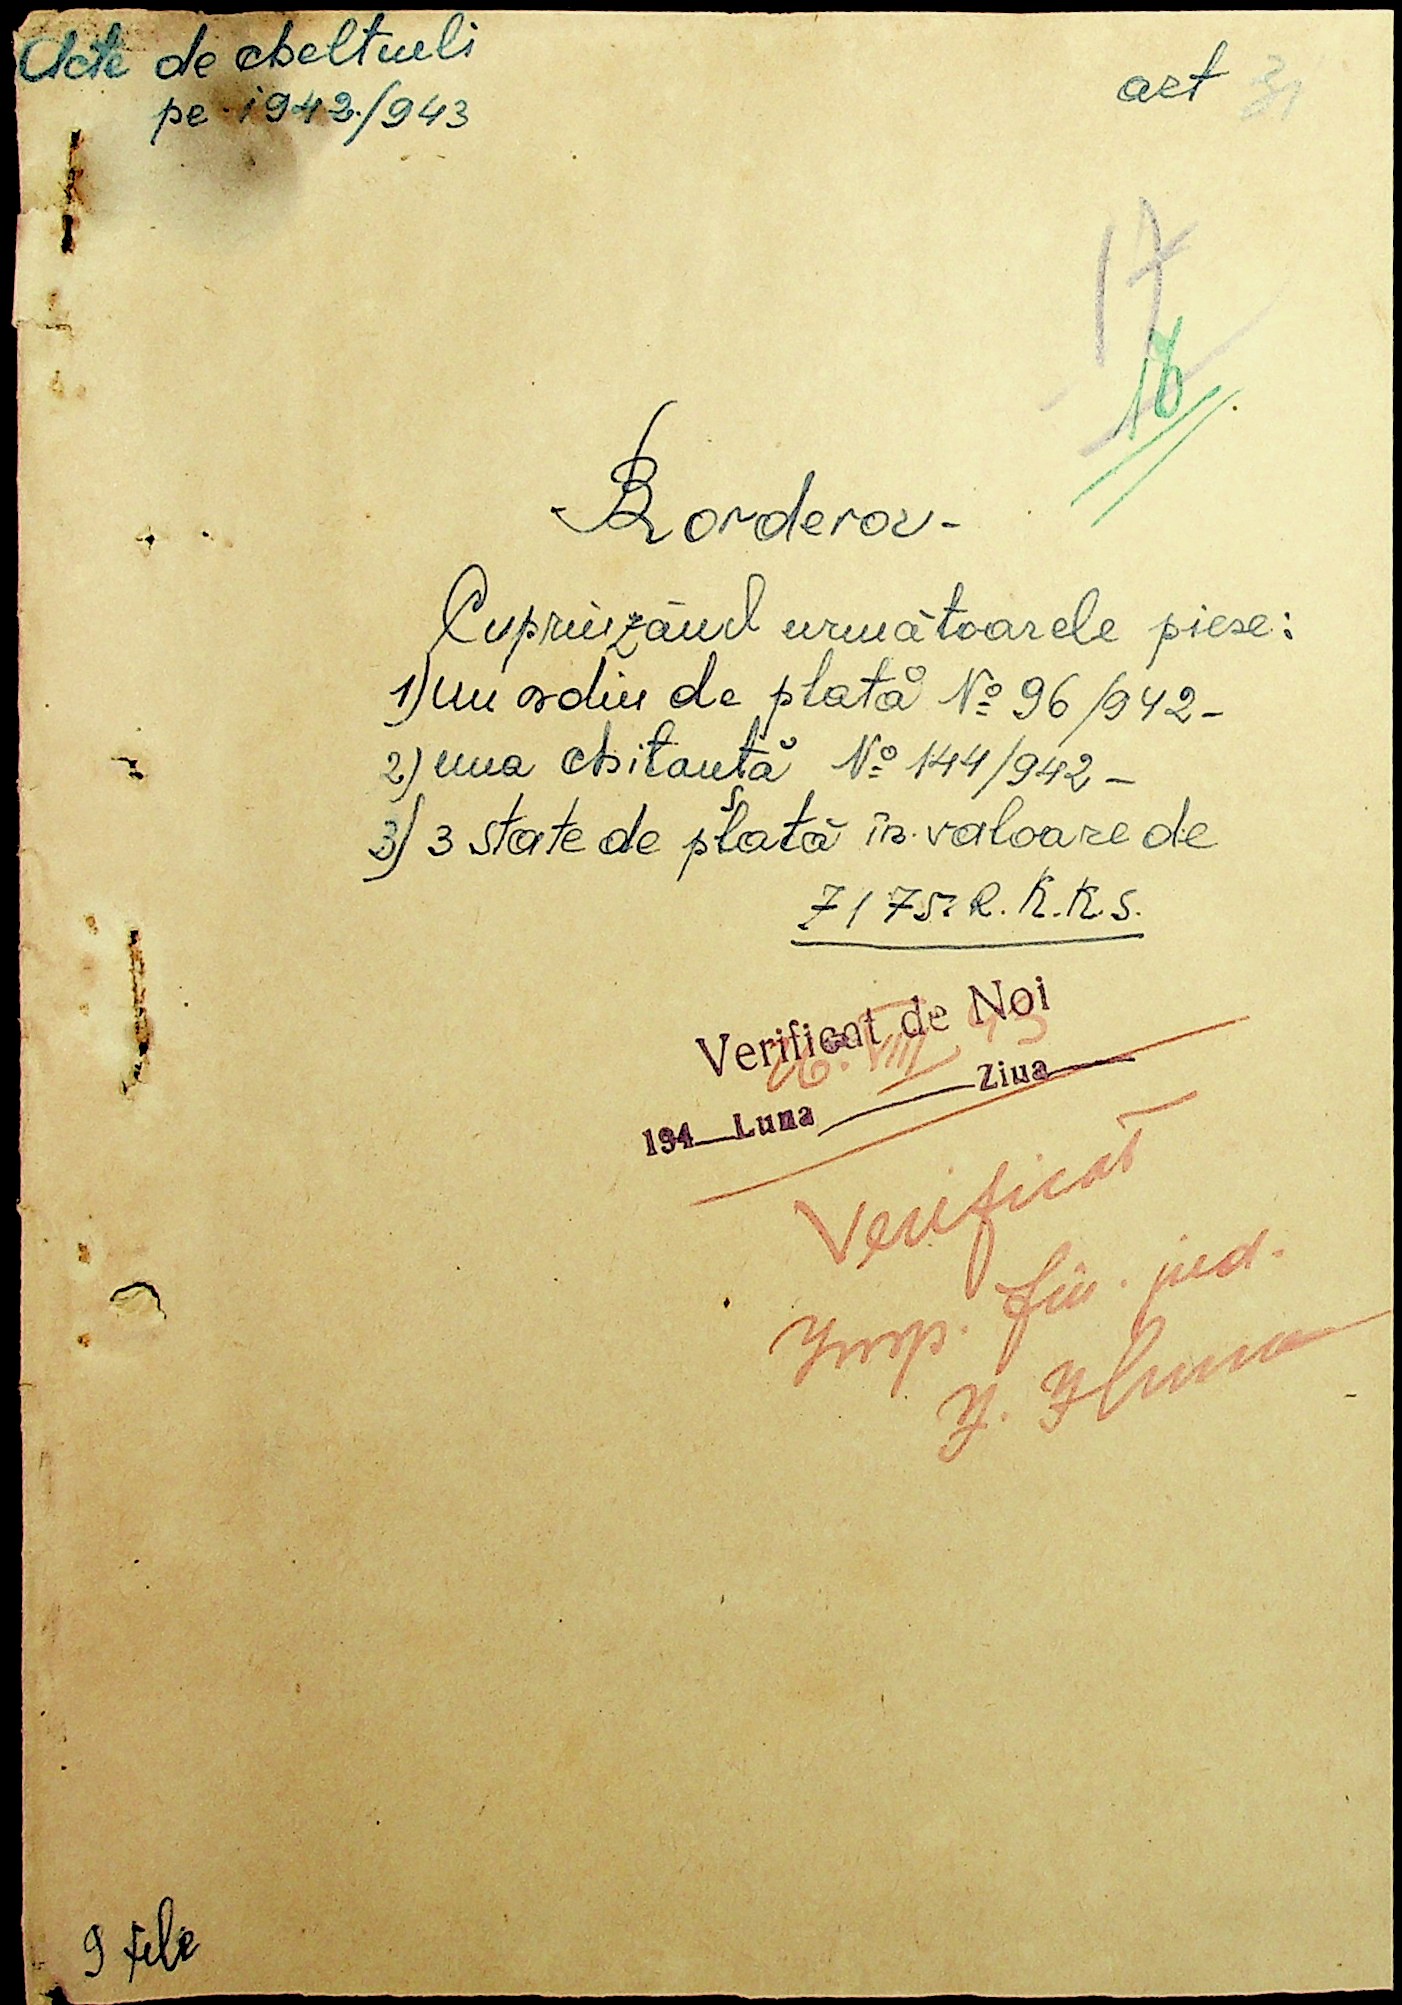 Acte de cheltueli
pe 1942/943
art 31
17
16
- Borderou -
Cuprinzând următoarele piese:
1) un ordin de plată № 96/942 -
2) una chitanță № 144/942 -
3) 3 state de plată în valoare de
7175 R.K.K.S.
Verificat de Noi
26. VIII 43
194 Luna Ziua
Verificat
Insp. fin. jud.
9 file